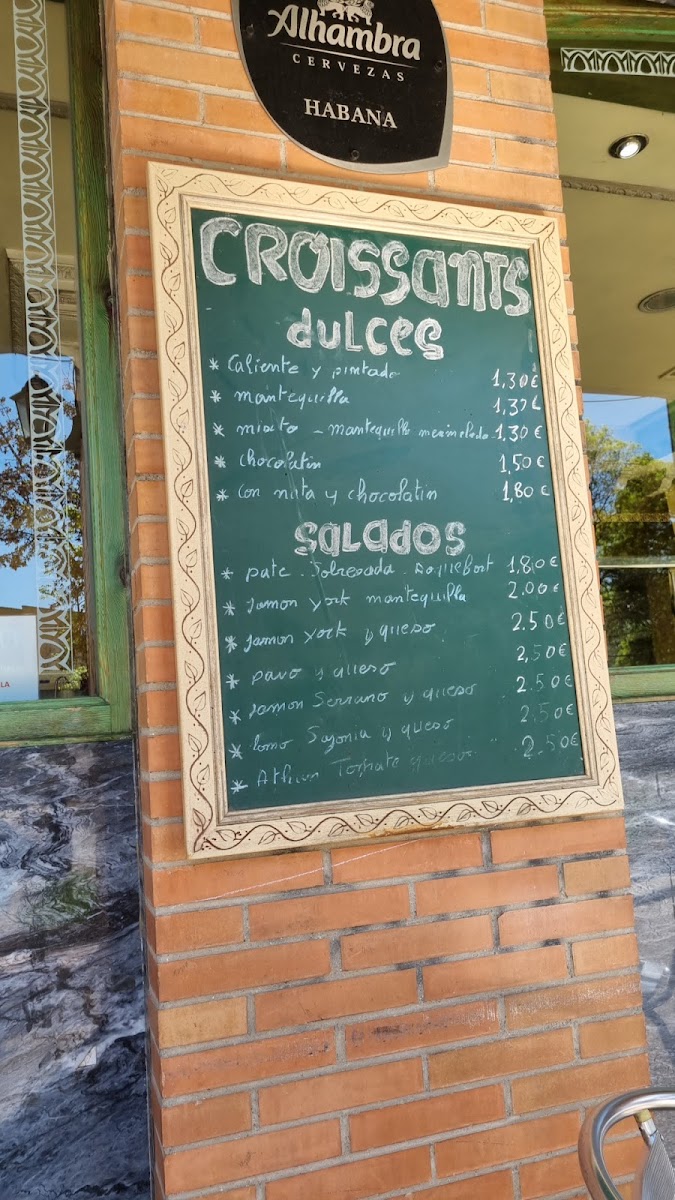 Alhambra
CERVEZAS
HABANA
CROISSANTS
dulces
* Caliente y pintado 1,30€
* mantequilla 1,30€
* mixto - mantequilla mermelada 1,30€
* chocolatin 1,50€
* con nata y chocolatin 1,80€
SALADOS
* pate . Sobresada . Roquefort 1,80€
* Jamon york mantequilla 2,00€
* Jamon york y queso 2,50€
* pavo y queso 2,50€
* Jamon Serrano y queso 2,50€
* lomo Sajonia y queso 2,50€
* Athun Tomate queso 2,50€
LA